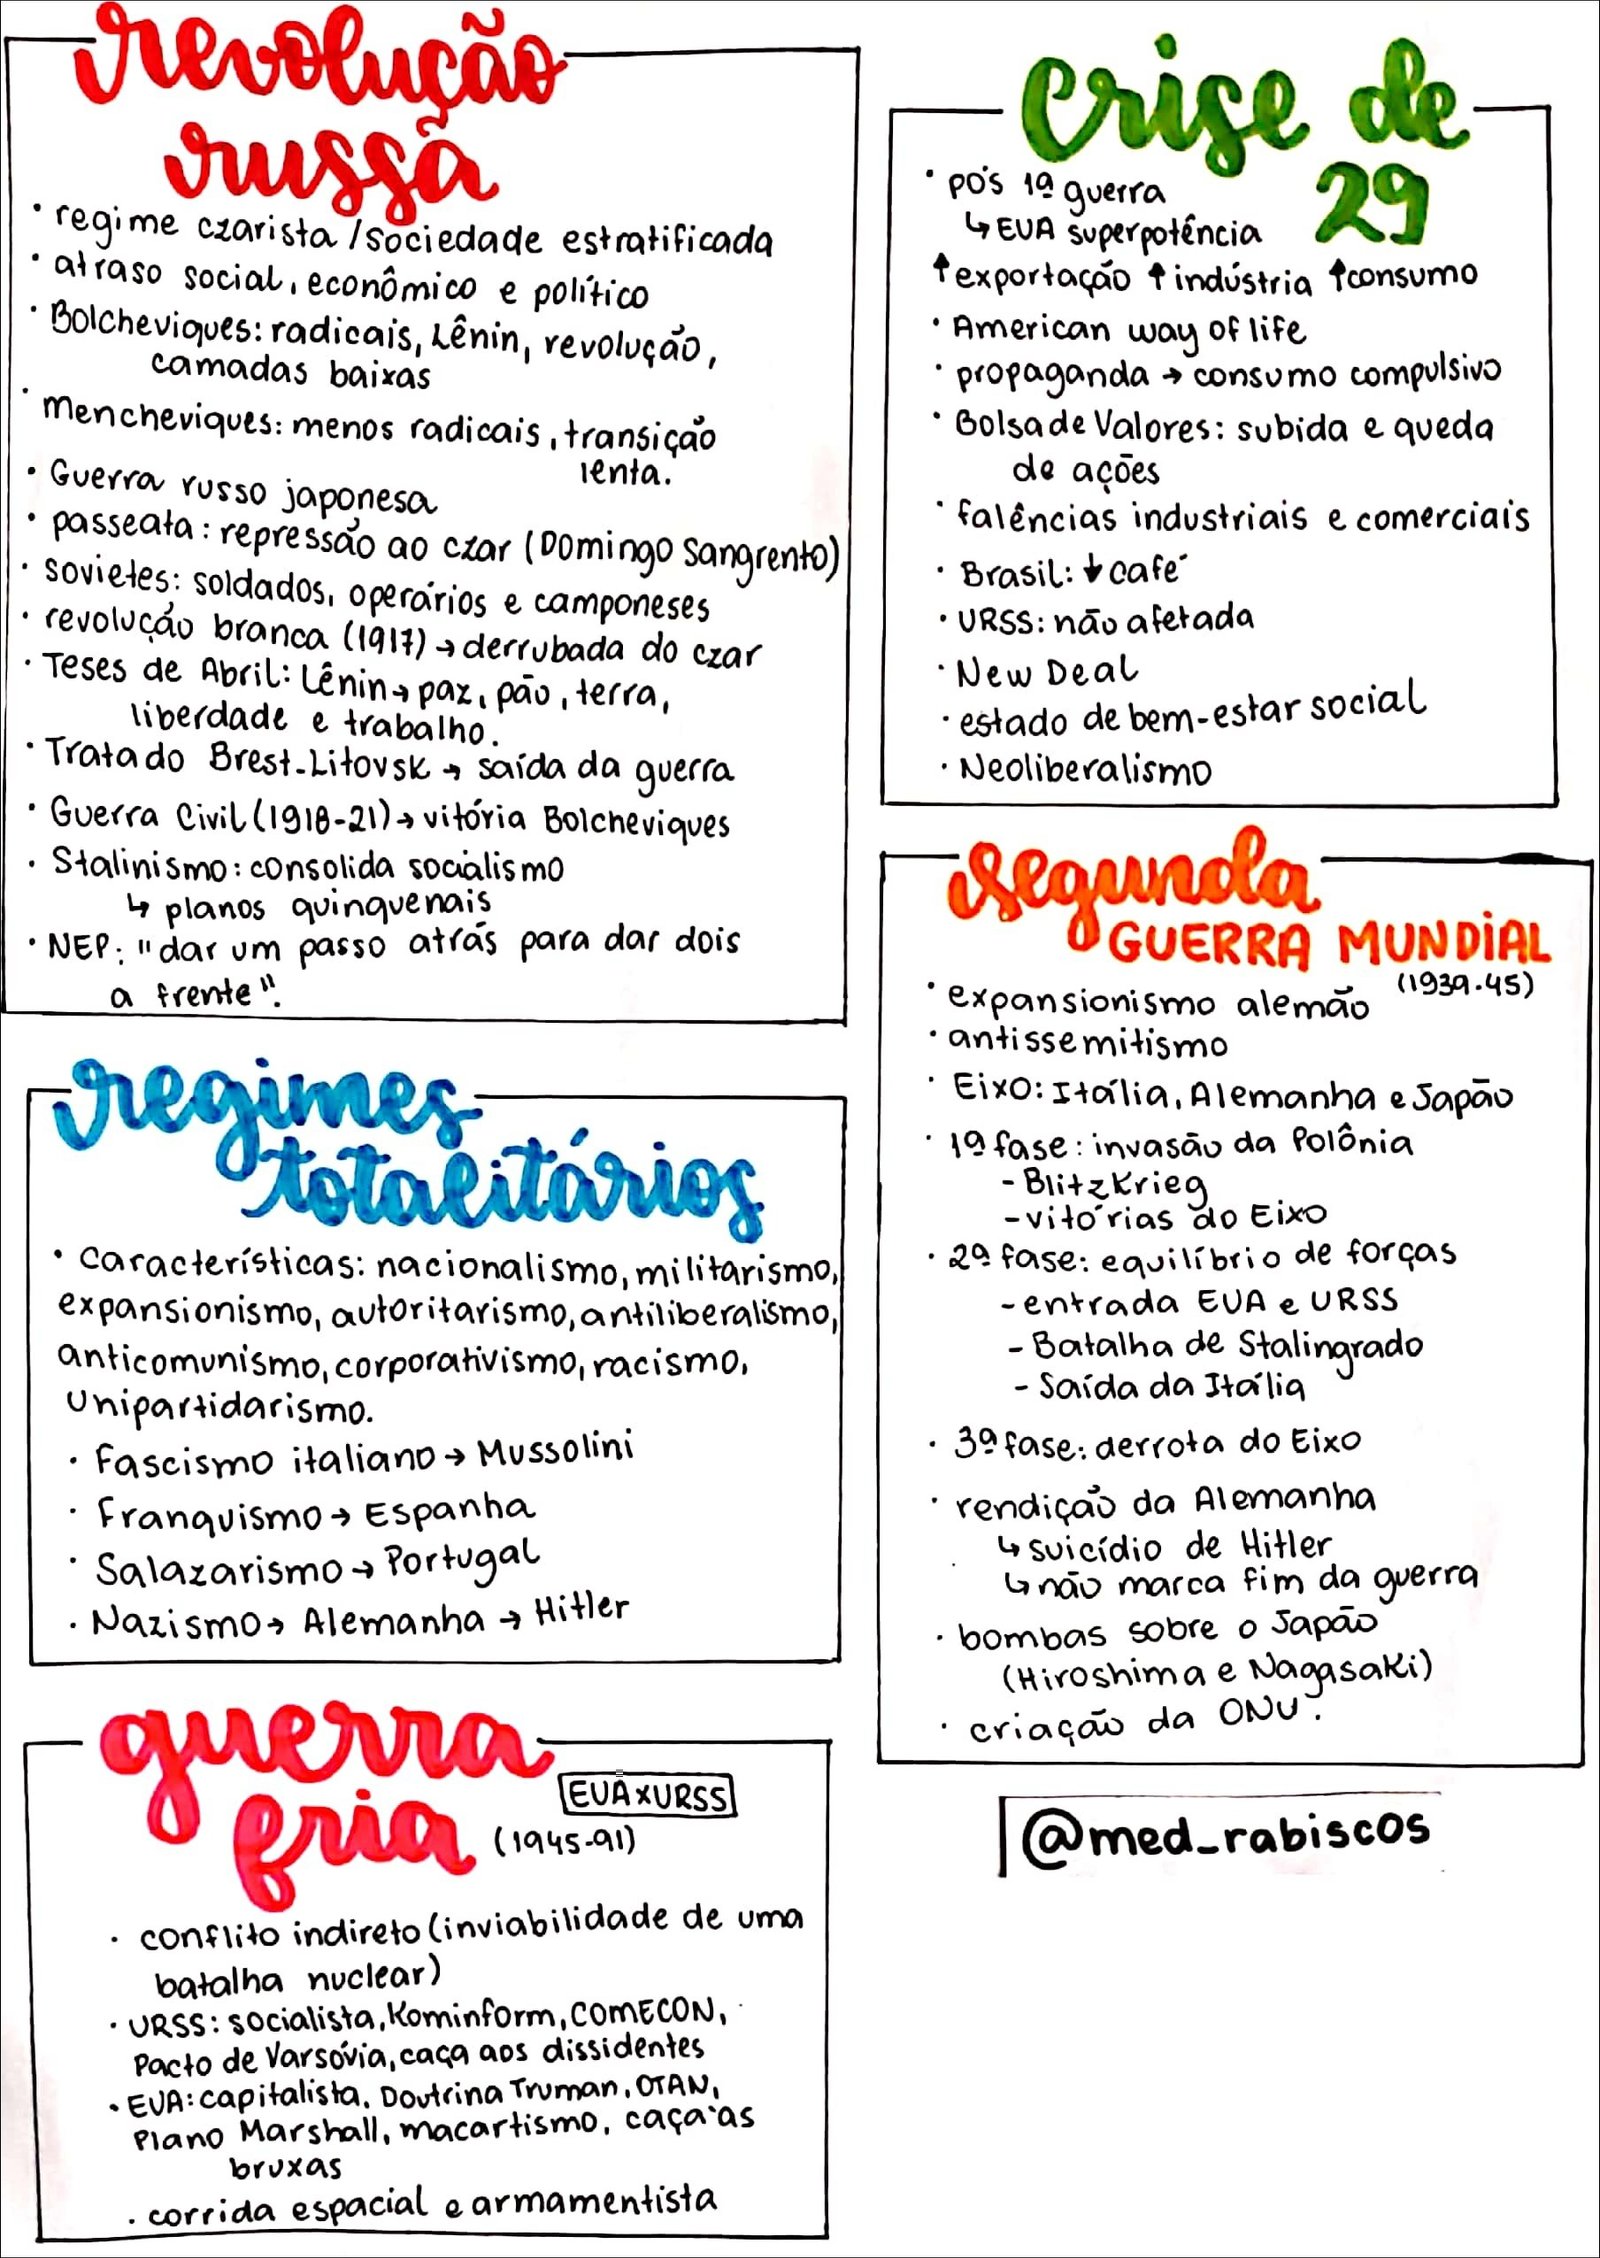 revolução
russa
• regime czarista / sociedade estratificada
• atraso social, econômico e político
• Bolcheviques: radicais, Lênin, revolução,
camadas baixas
• Mencheviques: menos radicais, transição
lenta.
• Guerra russo japonesa
• passeata: repressão ao czar (Domingo Sangrento)
• sovietes: soldados, operários e camponeses
• revolução branca (1917) → derrubada do czar
• Teses de Abril: Lênin → paz, pão, terra,
liberdade e trabalho.
• Tratado Brest-Litovsk → saída da guerra
• Guerra Civil (1918-21) → vitória Bolcheviques
• Stalinismo: consolida socialismo
↳ planos quinquenais
• NEP: "dar um passo atrás para dar dois
a frente".
regimes
totalitários
• características: nacionalismo, militarismo,
expansionismo, autoritarismo, antiliberalismo,
anticomunismo, corporativismo, racismo,
unipartidarismo.
• Fascismo italiano → Mussolini
• Franquismo → Espanha
• Salazarismo → Portugal
• Nazismo → Alemanha → Hitler
guerra
fria
EUA x URSS
(1945-91)
• conflito indireto (inviabilidade de uma
batalha nuclear)
• URSS: socialista, Kominform, COMECON,
Pacto de Varsóvia, caça aos dissidentes
• EUA: capitalista, Doutrina Truman, OTAN,
Plano Marshall, macartismo, caça às
bruxas
• corrida espacial e armamentista
Crise de
29
• pós 1ª guerra
↳ EUA superpotência
↑ exportação ↑ indústria ↑ consumo
• American way of life
• propaganda → consumo compulsivo
• Bolsa de Valores: subida e queda
de ações
• falências industriais e comerciais
• Brasil: ↓ café
• URSS: não afetada
• New Deal
• estado de bem-estar social
• Neoliberalismo
Segunda
GUERRA MUNDIAL
(1939-45)
• expansionismo alemão
• antissemitismo
• Eixo: Itália, Alemanha e Japão
• 1ª fase: invasão da Polônia
- Blitzkrieg
- vitórias do Eixo
• 2ª fase: equilíbrio de forças
- entrada EUA e URSS
- Batalha de Stalingrado
- Saída da Itália
• 3ª fase: derrota do Eixo
• rendição da Alemanha
↳ suicídio de Hitler
↳ não marca fim da guerra
• bombas sobre o Japão
(Hiroshima e Nagasaki)
• criação da ONU.
@med_rabiscos